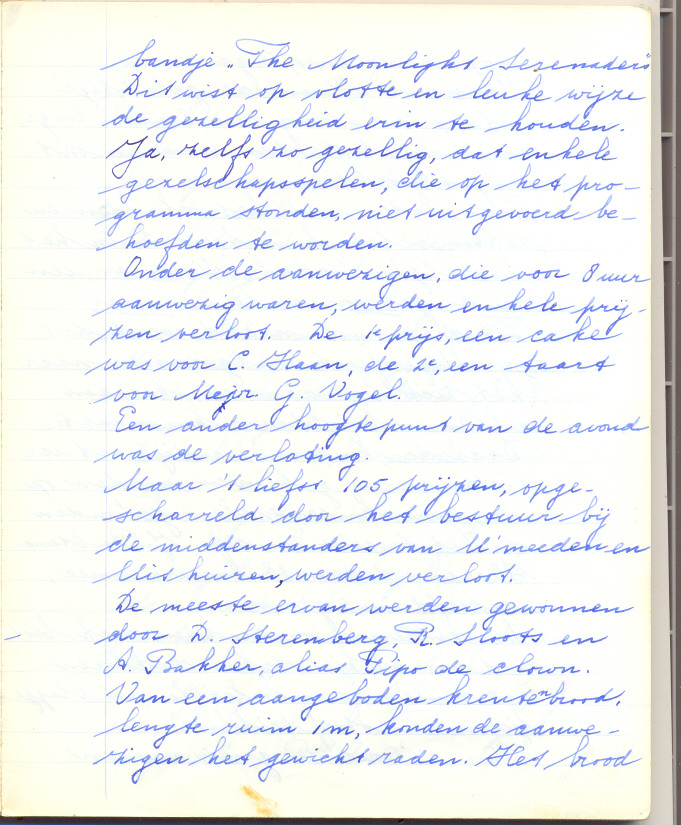 bandje „The Moonlight Serenaders"
Dit wist op vlotte en leuke wijze
de gezelligheid erin te houden.
Ja, zelfs zo gezellig, dat enkele
gezelschapsspelen, die op het pro-
gramma stonden, niet uitgevoerd be-
hoefden te worden.
Onder de aanwezigen, die voor 8 uur
aanwezig waren, werden enkele prij-
zen verloot. De 1e prijs, een cake
was voor C. Haan, de 2e, een taart
voor Mejr. G. Vogel.
Een ander hoogtepunt van de avond
was de verloting.
Maar 't liefst 105 prijzen, opge-
scharreld door het bestuur bij
de middenstanders van U'meeden en
Uishuizen, werden verloot.
De meeste ervan werden gewonnen
door D. Sterenberg, R. Sloots en
A. Bakker, alias Pipo de clown.
Van een aangeboden krentenbrood,
lengte ruim 1 m, konden de aanwe-
zigen het gewicht raden. Het brood